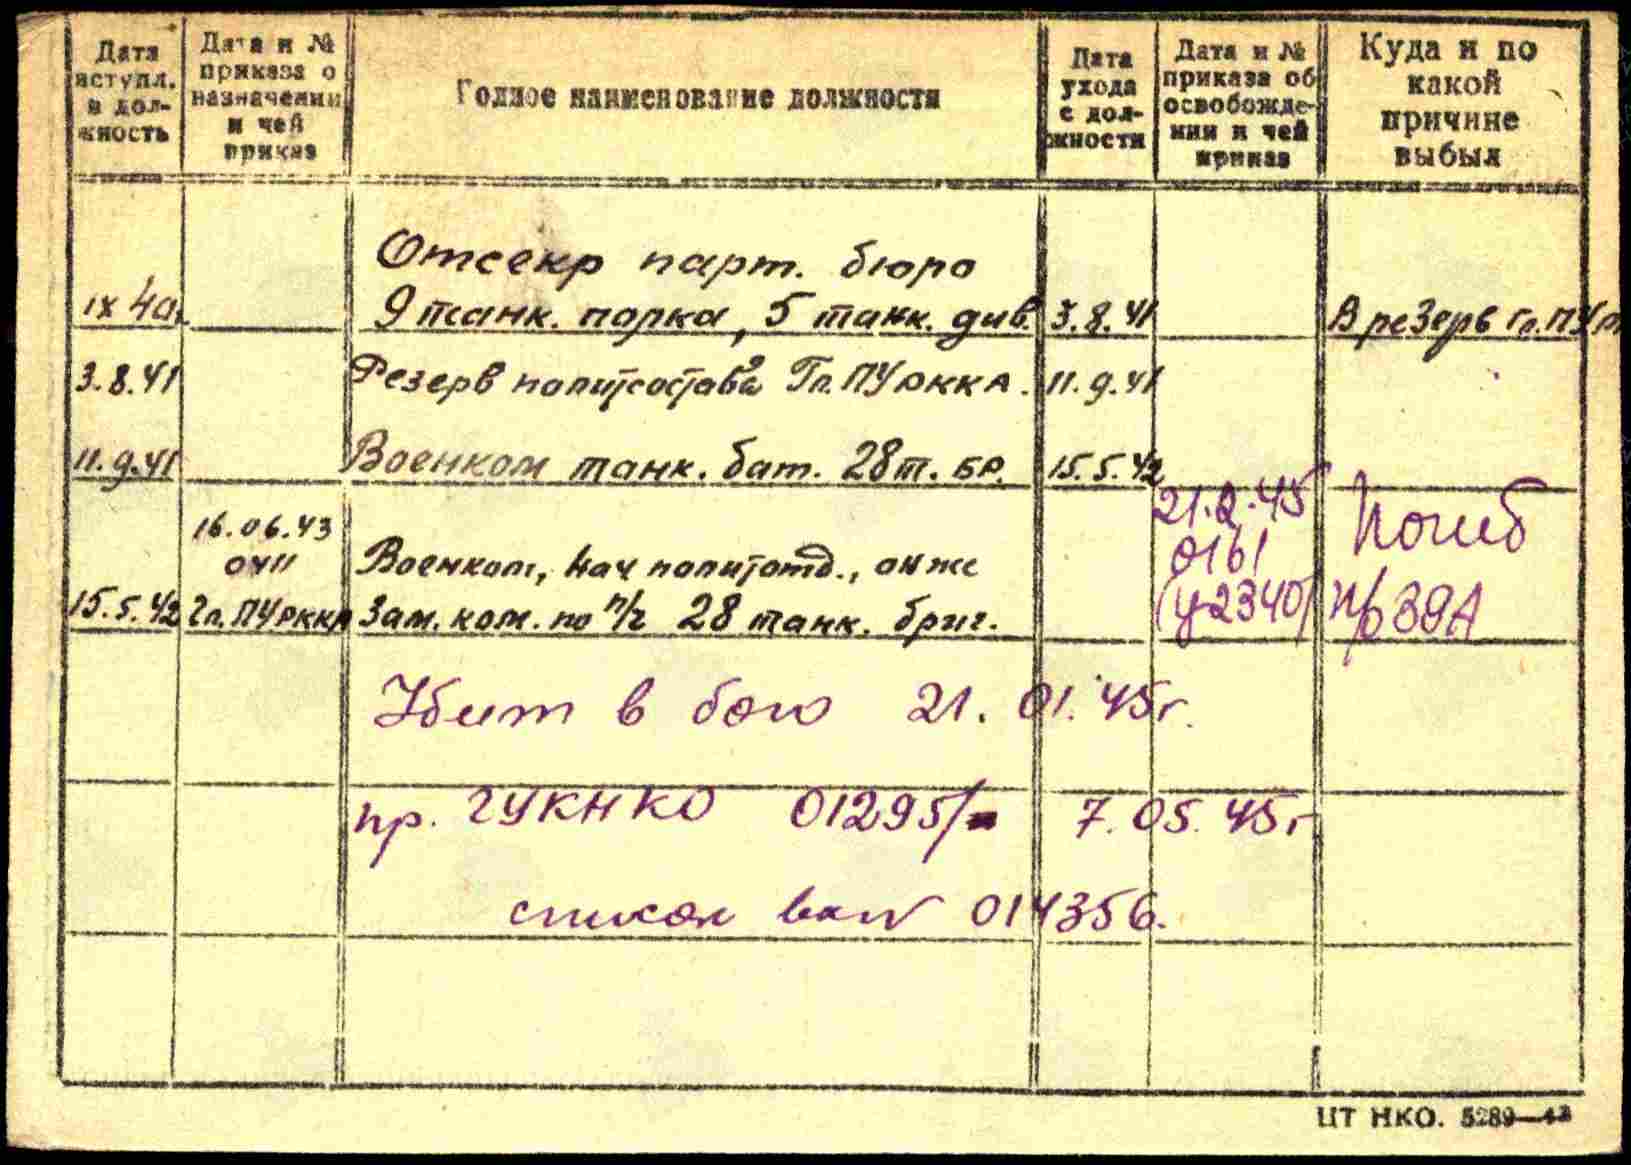 Дата вступл. в должность
Дата и № приказа о назначении и чей приказ
Полное наименование должности
Дата ухода с должности
Дата и № приказа об освобождении и чей приказ
Куда и по какой причине выбыл
Отсекр парт. бюро
IX 40. 9 танк. полка, 5 танк. див. 3.8.41 В резерв Гл.ПУ
3.8.41 Резерв политсостава Гл.ПУРККА. 11.9.41
11.9.41 Военком танк. бат. 28т. бр. 15.5.42
16.06.43 21.2.45 Погиб
0411 Военком, нач политотд., он же 0161
15.5.42 Гл.ПУРККА Зам. ком. по п/ч 28 танк. бриг. (у2340) п/б 39А
Убит в бою 21.01.45г.
пр. ГУКНКО 01295/ 7.05.45г
список вх N 014356.
ЦТ НКО. 5289—43